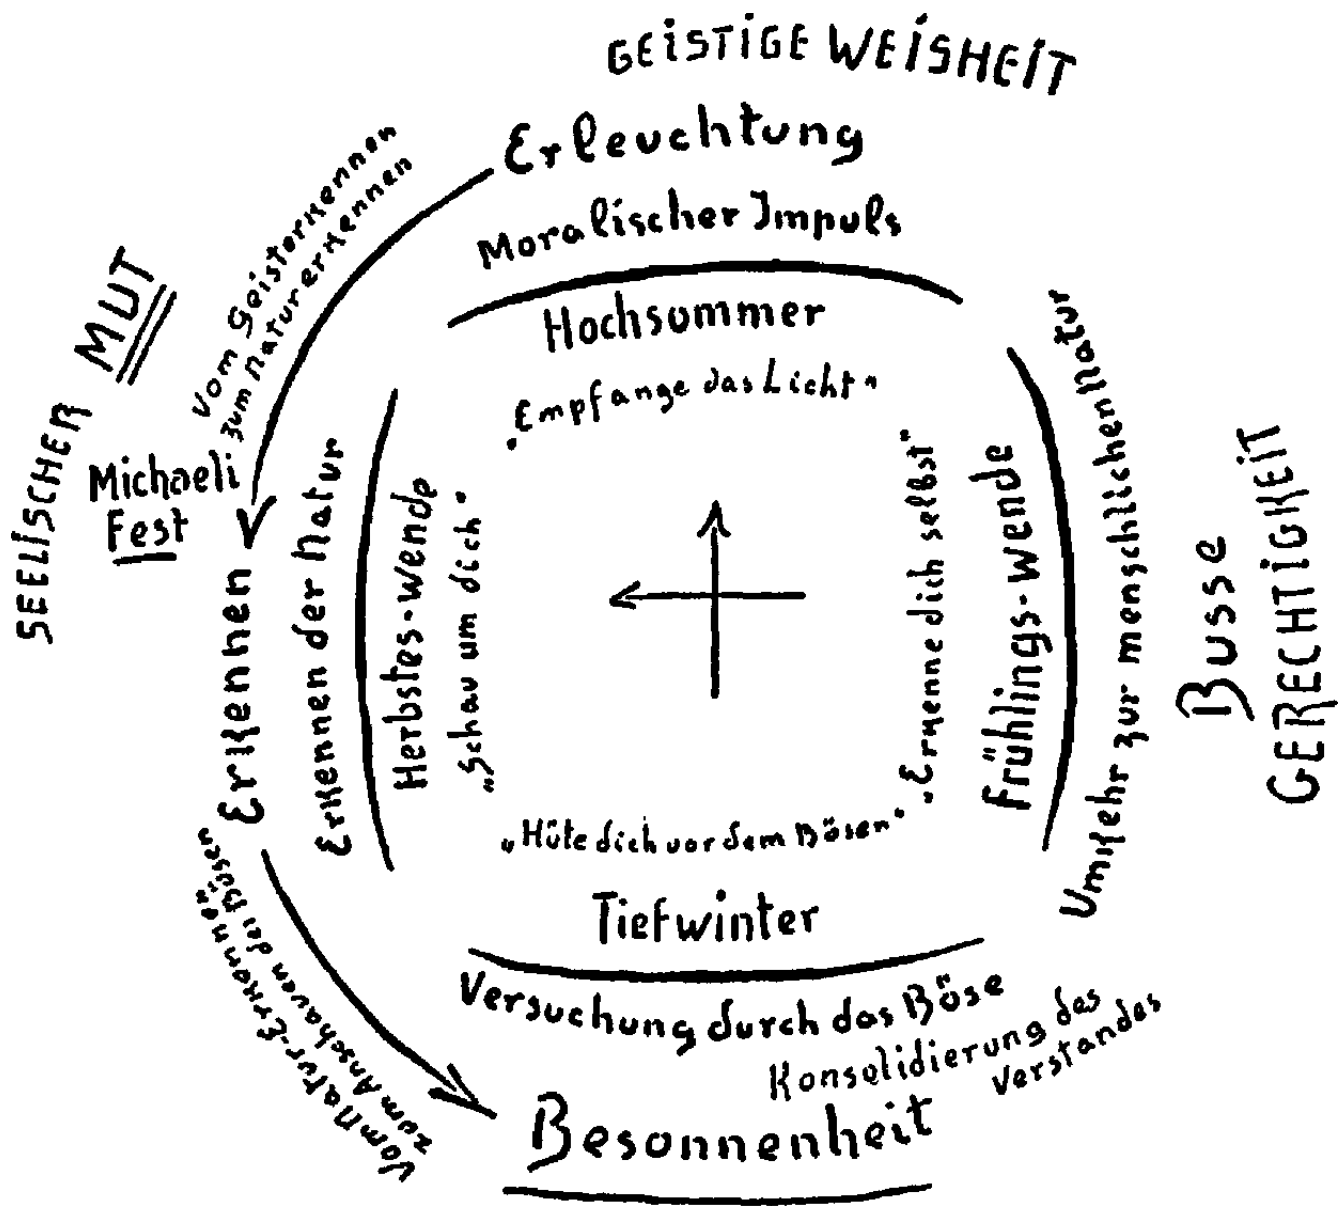 GEISTIGE WEISHEIT
Erleuchtung
Moralischer Impuls
Hochsommer
„Empfange das Licht“
Vom Geisterkennen
zum Naturerkennen
SEELISCHER MUT
Michaeli
Fest
Erkennen
Erkennen der Natur
Herbstes-wende
„Schau um dich“
„Erkenne dich selbst“
Frühlings-wende
Umkehr zur menschlichen Natur
Busse
GERECHTIGKEIT
„Hüte dich vor dem Bösen“
Tiefwinter
Versuchung durch das Böse
Konsolidierung des
Verstandes
Besonnenheit
Vom Natur-Erkennen
zum Anschauen des Bösen